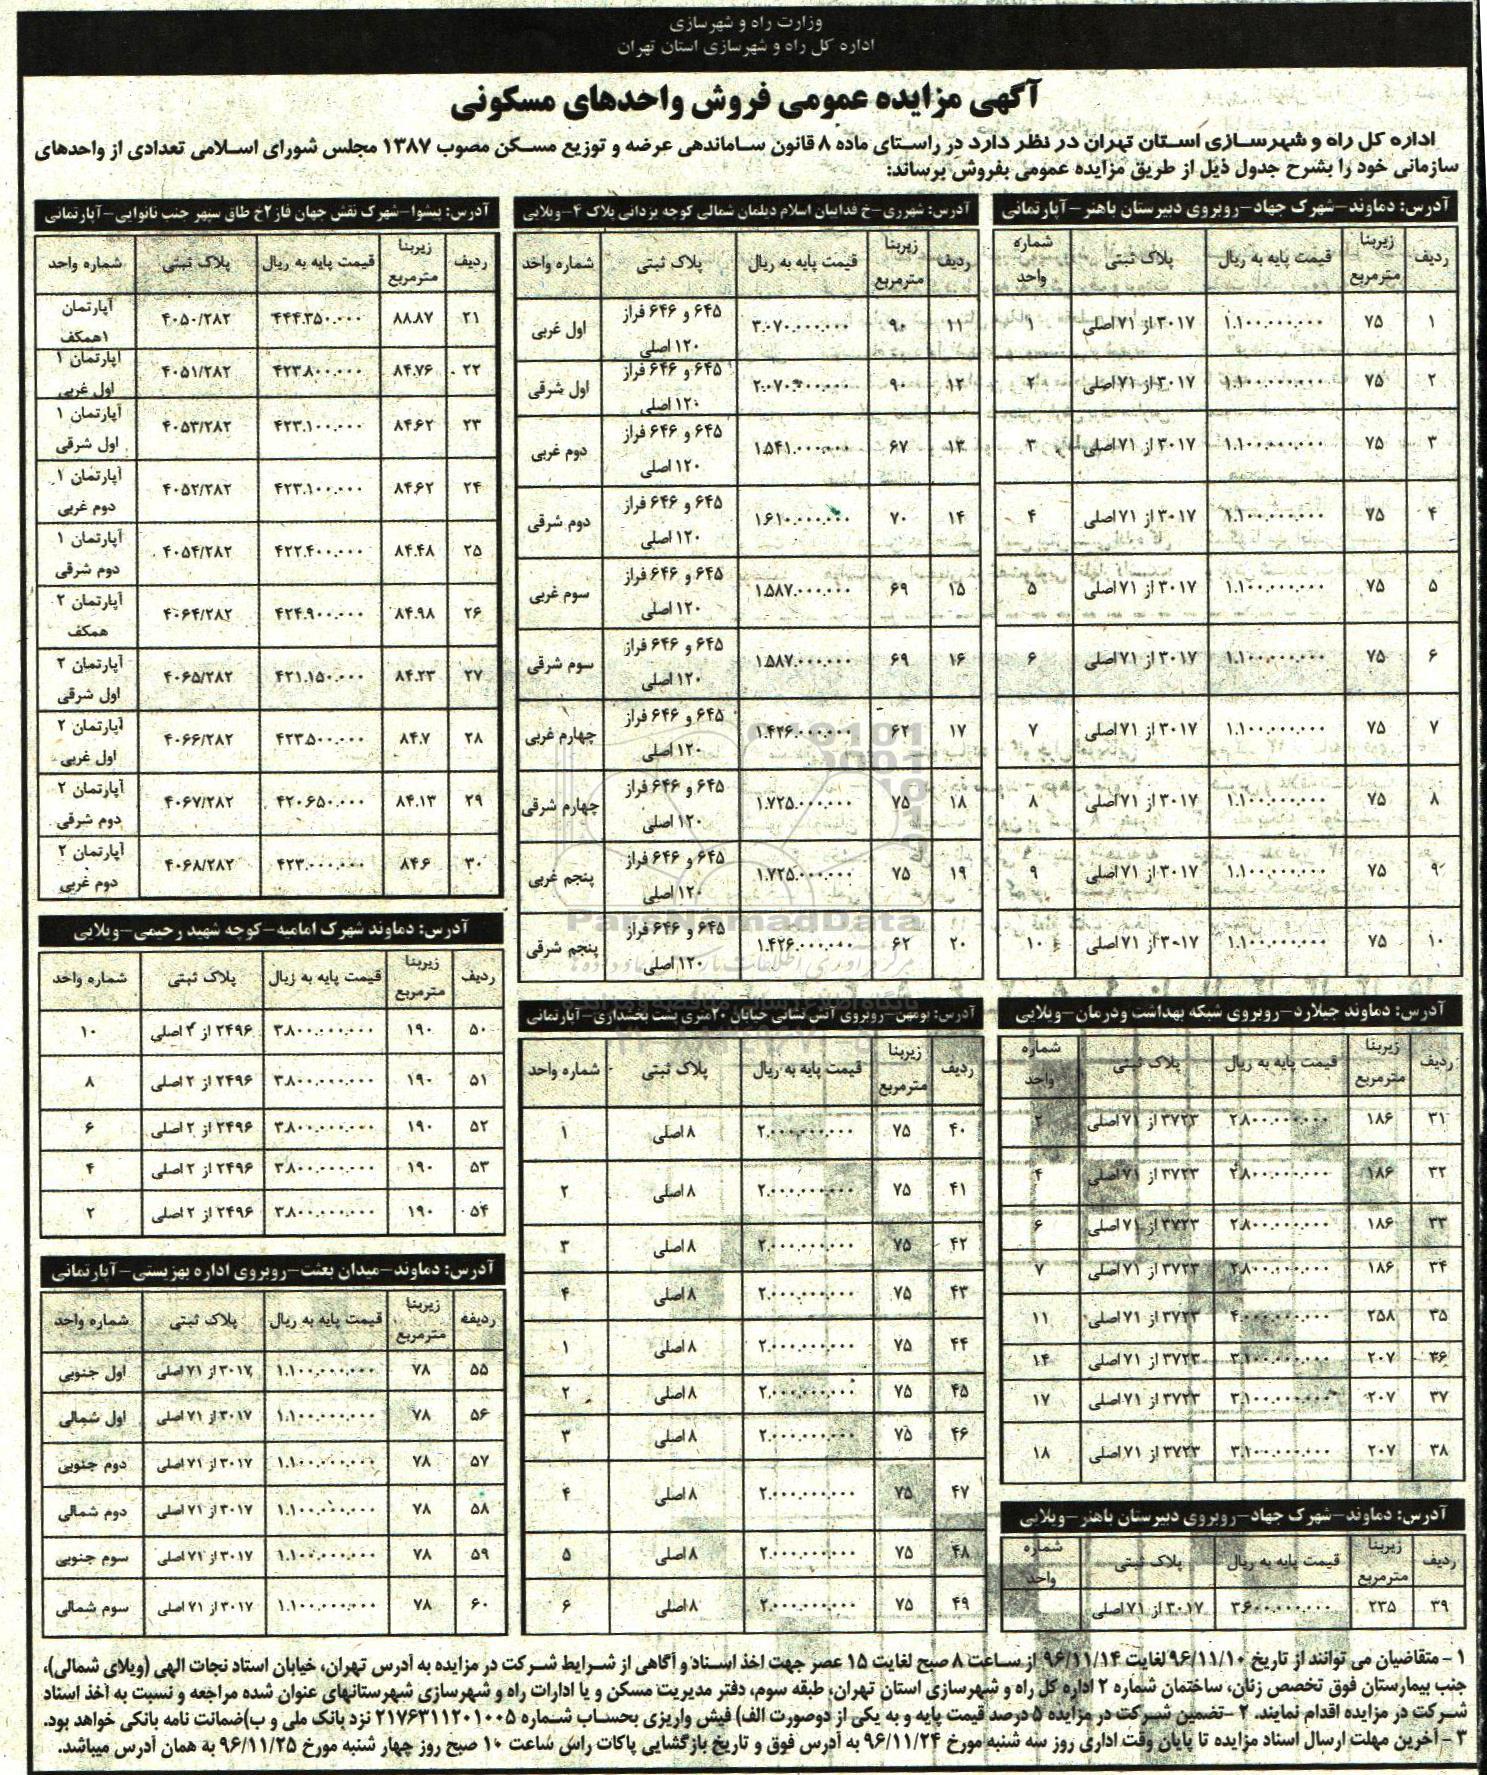 وزارت راه و شهرسازی
اداره کل راه و شهرسازی استان تهران
آگهی مزایده عمومی فروش واحدهای مسکونی
اداره کل راه و شهرسازی استان تهران در نظر دارد در راستای ماده ۸ قانون ساماندهی عرضه و توزیع مسکن مصوب ۱۳۸۷ مجلس شورای اسلامی تعدادی از واحدهای
سازمانی خود را بشرح جدول ذیل از طریق مزایده عمومی بفروش برساند:
آدرس: دماوند-شهرک جهاد-روبروی دبیرستان باهنر-آپارتمانی
ردیف زیربنا مترمربع قیمت پایه به ریال پلاک ثبتی شماره واحد
۱ ۷۵ ۱.۱۰۰.۰۰۰.۰۰۰ ۳۰۱۷ از ۷۱ اصلی ۱
۲ ۷۵ ۱.۱۰۰.۰۰۰.۰۰۰ ۳۰۱۷ از ۷۱ اصلی ۲
۳ ۷۵ ۱.۱۰۰.۰۰۰.۰۰۰ ۳۰۱۷ از ۷۱ اصلی ۳
۴ ۷۵ ۱.۱۰۰.۰۰۰.۰۰۰ ۳۰۱۷ از ۷۱ اصلی ۴
۵ ۷۵ ۱.۱۰۰.۰۰۰.۰۰۰ ۳۰۱۷ از ۷۱ اصلی ۵
۶ ۷۵ ۱.۱۰۰.۰۰۰.۰۰۰ ۳۰۱۷ از ۷۱ اصلی ۶
۷ ۷۵ ۱.۱۰۰.۰۰۰.۰۰۰ ۳۰۱۷ از ۷۱ اصلی ۷
۸ ۷۵ ۱.۱۰۰.۰۰۰.۰۰۰ ۳۰۱۷ از ۷۱ اصلی ۸
۹ ۷۵ ۱.۱۰۰.۰۰۰.۰۰۰ ۳۰۱۷ از ۷۱ اصلی ۹
۱۰ ۷۵ ۱.۱۰۰.۰۰۰.۰۰۰ ۳۰۱۷ از ۷۱ اصلی ۱۰
آدرس: دماوند جیلارد-روبروی شبکه بهداشت ودرمان-ویلایی
ردیف زیربنا مترمربع قیمت پایه به ریال پلاک ثبتی شماره واحد
۳۱ ۱۸۶ ۲.۸۰۰.۰۰۰.۰۰۰ ۳۷۲۳ از ۷۱ اصلی ۲
۳۲ ۱۸۶ ۲.۸۰۰.۰۰۰.۰۰۰ ۳۷۲۳ از ۷۱ اصلی ۴
۳۳ ۱۸۶ ۲.۸۰۰.۰۰۰.۰۰۰ ۳۷۲۳ از ۷۱ اصلی ۶
۳۴ ۱۸۶ ۲.۸۰۰.۰۰۰.۰۰۰ ۳۷۲۳ از ۷۱ اصلی ۷
۳۵ ۲۵۸ ۴.۰۰۰.۰۰۰.۰۰۰ ۳۷۲۳ از ۷۱ اصلی ۱۱
۳۶ ۲۰۷ ۳.۱۰۰.۰۰۰.۰۰۰ ۳۷۲۳ از ۷۱ اصلی ۱۴
۳۷ ۲۰۷ ۳.۱۰۰.۰۰۰.۰۰۰ ۳۷۲۳ از ۷۱ اصلی ۱۷
۳۸ ۲۰۷ ۳.۱۰۰.۰۰۰.۰۰۰ ۳۷۲۳ از ۷۱ اصلی ۱۸
آدرس: دماوند-شهرک جهاد-روبروی دبیرستان باهنر-ویلایی
ردیف زیربنا مترمربع قیمت پایه به ریال پلاک ثبتی شماره واحد
۳۹ ۲۳۵ ۳.۶۰۰.۰۰۰.۰۰۰ ۳۰۱۷ از ۷۱ اصلی
آدرس: شهرری-خ فداییان اسلام دیلمان شمالی کوچه یزدانی پلاک ۴-ویلایی
ردیف زیربنا مترمربع قیمت پایه به ریال پلاک ثبتی شماره واحد
۱۱ ۹۰ ۳.۰۷۰.۰۰۰.۰۰۰ ۶۴۵ و ۶۴۶ فراز ۱۲۰ اصلی اول غربی
۱۲ ۹۰ ۲.۰۷۰.۰۰۰.۰۰۰ ۶۴۵ و ۶۴۶ فراز ۱۲۰ اصلی اول شرقی
۱۳ ۶۷ ۱.۵۴۱.۰۰۰.۰۰۰ ۶۴۵ و ۶۴۶ فراز ۱۲۰ اصلی دوم غربی
۱۴ ۷۰ ۱.۶۱۰.۰۰۰.۰۰۰ ۶۴۵ و ۶۴۶ فراز ۱۲۰ اصلی دوم شرقی
۱۵ ۶۹ ۱.۵۸۷.۰۰۰.۰۰۰ ۶۴۵ و ۶۴۶ فراز ۱۲۰ اصلی سوم غربی
۱۶ ۶۹ ۱.۵۸۷.۰۰۰.۰۰۰ ۶۴۵ و ۶۴۶ فراز ۱۲۰ اصلی سوم شرقی
۱۷ ۶۲ ۱.۴۲۶.۰۰۰.۰۰۰ ۶۴۵ و ۶۴۶ فراز ۱۲۰ اصلی چهارم غربی
۱۸ ۷۵ ۱.۷۲۵.۰۰۰.۰۰۰ ۶۴۵ و ۶۴۶ فراز ۱۲۰ اصلی چهارم شرقی
۱۹ ۷۵ ۱.۷۲۵.۰۰۰.۰۰۰ ۶۴۵ و ۶۴۶ فراز ۱۲۰ اصلی پنجم غربی
۲۰ ۶۲ ۱.۴۲۶.۰۰۰.۰۰۰ ۶۴۵ و ۶۴۶ فراز ۱۲۰ اصلی پنجم شرقی
ParsNamadData
آدرس: بومهن-روبروی آتش نشانی خیابان ۲۰متری پشت بخشداری-آپارتمانی
ردیف زیربنا مترمربع قیمت پایه به ریال پلاک ثبتی شماره واحد
۴۰ ۷۵ ۲.۰۰۰.۰۰۰.۰۰۰ ۸ اصلی ۱
۴۱ ۷۵ ۲.۰۰۰.۰۰۰.۰۰۰ ۸ اصلی ۲
۴۲ ۷۵ ۲.۰۰۰.۰۰۰.۰۰۰ ۸ اصلی ۳
۴۳ ۷۵ ۲.۰۰۰.۰۰۰.۰۰۰ ۸ اصلی ۴
۴۴ ۷۵ ۲.۰۰۰.۰۰۰.۰۰۰ ۸ اصلی ۱
۴۵ ۷۵ ۲.۰۰۰.۰۰۰.۰۰۰ ۸ اصلی ۲
۴۶ ۷۵ ۲.۰۰۰.۰۰۰.۰۰۰ ۸ اصلی ۳
۴۷ ۷۵ ۲.۰۰۰.۰۰۰.۰۰۰ ۸ اصلی ۴
۴۸ ۷۵ ۲.۰۰۰.۰۰۰.۰۰۰ ۸ اصلی ۵
۴۹ ۷۵ ۲.۰۰۰.۰۰۰.۰۰۰ ۸ اصلی ۶
آدرس: پیشوا-شهرک نقش جهان فاز۲خ طاق سپهر جنب نانوایی-آپارتمانی
ردیف زیربنا مترمربع قیمت پایه به ریال پلاک ثبتی شماره واحد
۲۱ ۸۸.۸۷ ۴۴۴.۳۵۰.۰۰۰ ۴۰۵۰/۲۸۲ آپارتمان ۱همکف
۲۲ ۸۴.۷۶ ۴۲۳.۸۰۰.۰۰۰ ۴۰۵۱/۲۸۲ آپارتمان ۱ اول غربی
۲۳ ۸۴.۶۲ ۴۲۳.۱۰۰.۰۰۰ ۴۰۵۳/۲۸۲ آپارتمان ۱ اول شرقی
۲۴ ۸۴.۶۲ ۴۲۳.۱۰۰.۰۰۰ ۴۰۵۲/۲۸۲ آپارتمان ۱ دوم غربی
۲۵ ۸۴.۴۸ ۴۲۲.۴۰۰.۰۰۰ ۴۰۵۴/۲۸۲ آپارتمان ۱ دوم شرقی
۲۶ ۸۴.۹۸ ۴۲۴.۹۰۰.۰۰۰ ۴۰۶۴/۲۸۲ آپارتمان ۲ همکف
۲۷ ۸۴.۲۳ ۴۲۱.۱۵۰.۰۰۰ ۴۰۶۵/۲۸۲ آپارتمان ۲ اول شرقی
۲۸ ۸۴.۷ ۴۲۳.۵۰۰.۰۰۰ ۴۰۶۶/۲۸۲ آپارتمان ۲ اول غربی
۲۹ ۸۴.۱۳ ۴۲۰.۶۵۰.۰۰۰ ۴۰۶۷/۲۸۲ آپارتمان ۲ دوم شرقی
۳۰ ۸۴.۶ ۴۲۳.۰۰۰.۰۰۰ ۴۰۶۸/۲۸۲ آپارتمان ۲ دوم غربی
آدرس: دماوند شهرک امامیه-کوچه شهید رحیمی-ویلایی
ردیف زیربنا مترمربع قیمت پایه به ریال پلاک ثبتی شماره واحد
۵۰ ۱۹۰ ۳.۸۰۰.۰۰۰.۰۰۰ ۲۴۹۶ از ۲ اصلی ۱۰
۵۱ ۱۹۰ ۳.۸۰۰.۰۰۰.۰۰۰ ۲۴۹۶ از ۲ اصلی ۸
۵۲ ۱۹۰ ۳.۸۰۰.۰۰۰.۰۰۰ ۲۴۹۶ از ۲ اصلی ۶
۵۳ ۱۹۰ ۳.۸۰۰.۰۰۰.۰۰۰ ۲۴۹۶ از ۲ اصلی ۴
۵۴ ۱۹۰ ۳.۸۰۰.۰۰۰.۰۰۰ ۲۴۹۶ از ۲ اصلی ۲
آدرس: دماوند-میدان بعثت-روبروی اداره بهزیستی-آپارتمانی
ردیفه زیربنا مترمربع قیمت پایه به ریال پلاک ثبتی شماره واحد
۵۵ ۷۸ ۱.۱۰۰.۰۰۰.۰۰۰ ۳۰۱۷ از ۷۱ اصلی اول جنوبی
۵۶ ۷۸ ۱.۱۰۰.۰۰۰.۰۰۰ ۳۰۱۷ از ۷۱ اصلی اول شمالی
۵۷ ۷۸ ۱.۱۰۰.۰۰۰.۰۰۰ ۳۰۱۷ از ۷۱ اصلی دوم جنوبی
۵۸ ۷۸ ۱.۱۰۰.۰۰۰.۰۰۰ ۳۰۱۷ از ۷۱ اصلی دوم شمالی
۵۹ ۷۸ ۱.۱۰۰.۰۰۰.۰۰۰ ۳۰۱۷ از ۷۱ اصلی سوم جنوبی
۶۰ ۷۸ ۱.۱۰۰.۰۰۰.۰۰۰ ۳۰۱۷ از ۷۱ اصلی سوم شمالی
۱ - متقاضیان می توانند از تاریخ ۹۶/۱۱/۱۰ لغایت ۹۶/۱۱/۱۴ از ساعت ۸ صبح لغایت ۱۵ عصر جهت اخذ اسناد و آگاهی از شرایط شرکت در مزایده به آدرس تهران، خیابان استاد نجات الهی (ویلای شمالی)،
جنب بیمارستان فوق تخصص زنان، ساختمان شماره ۲ اداره کل راه و شهرسازی استان تهران، طبقه سوم، دفتر مدیریت مسکن و یا ادارات راه و شهرسازی شهرستانهای عنوان شده مراجعه و نسبت به اخذ اسناد
شرکت در مزایده اقدام نمایند. ۲ -تضمین شرکت در مزایده ۵ درصد قیمت پایه و به یکی از دوصورت الف) فیش واریزی بحساب شماره ۲۱۷۶۳۱۱۲۰۱۰۰۵ نزد بانک ملی و ب)ضمانت نامه بانکی خواهد بود.
۳ - آخرین مهلت ارسال اسناد مزایده تا پایان وقت اداری روز سه شنبه مورخ ۹۶/۱۱/۲۴ به آدرس فوق و تاریخ بازگشایی پاکات راس ساعت ۱۰ صبح روز چهار شنبه مورخ ۹۶/۱۱/۲۵ به همان آدرس میباشد.